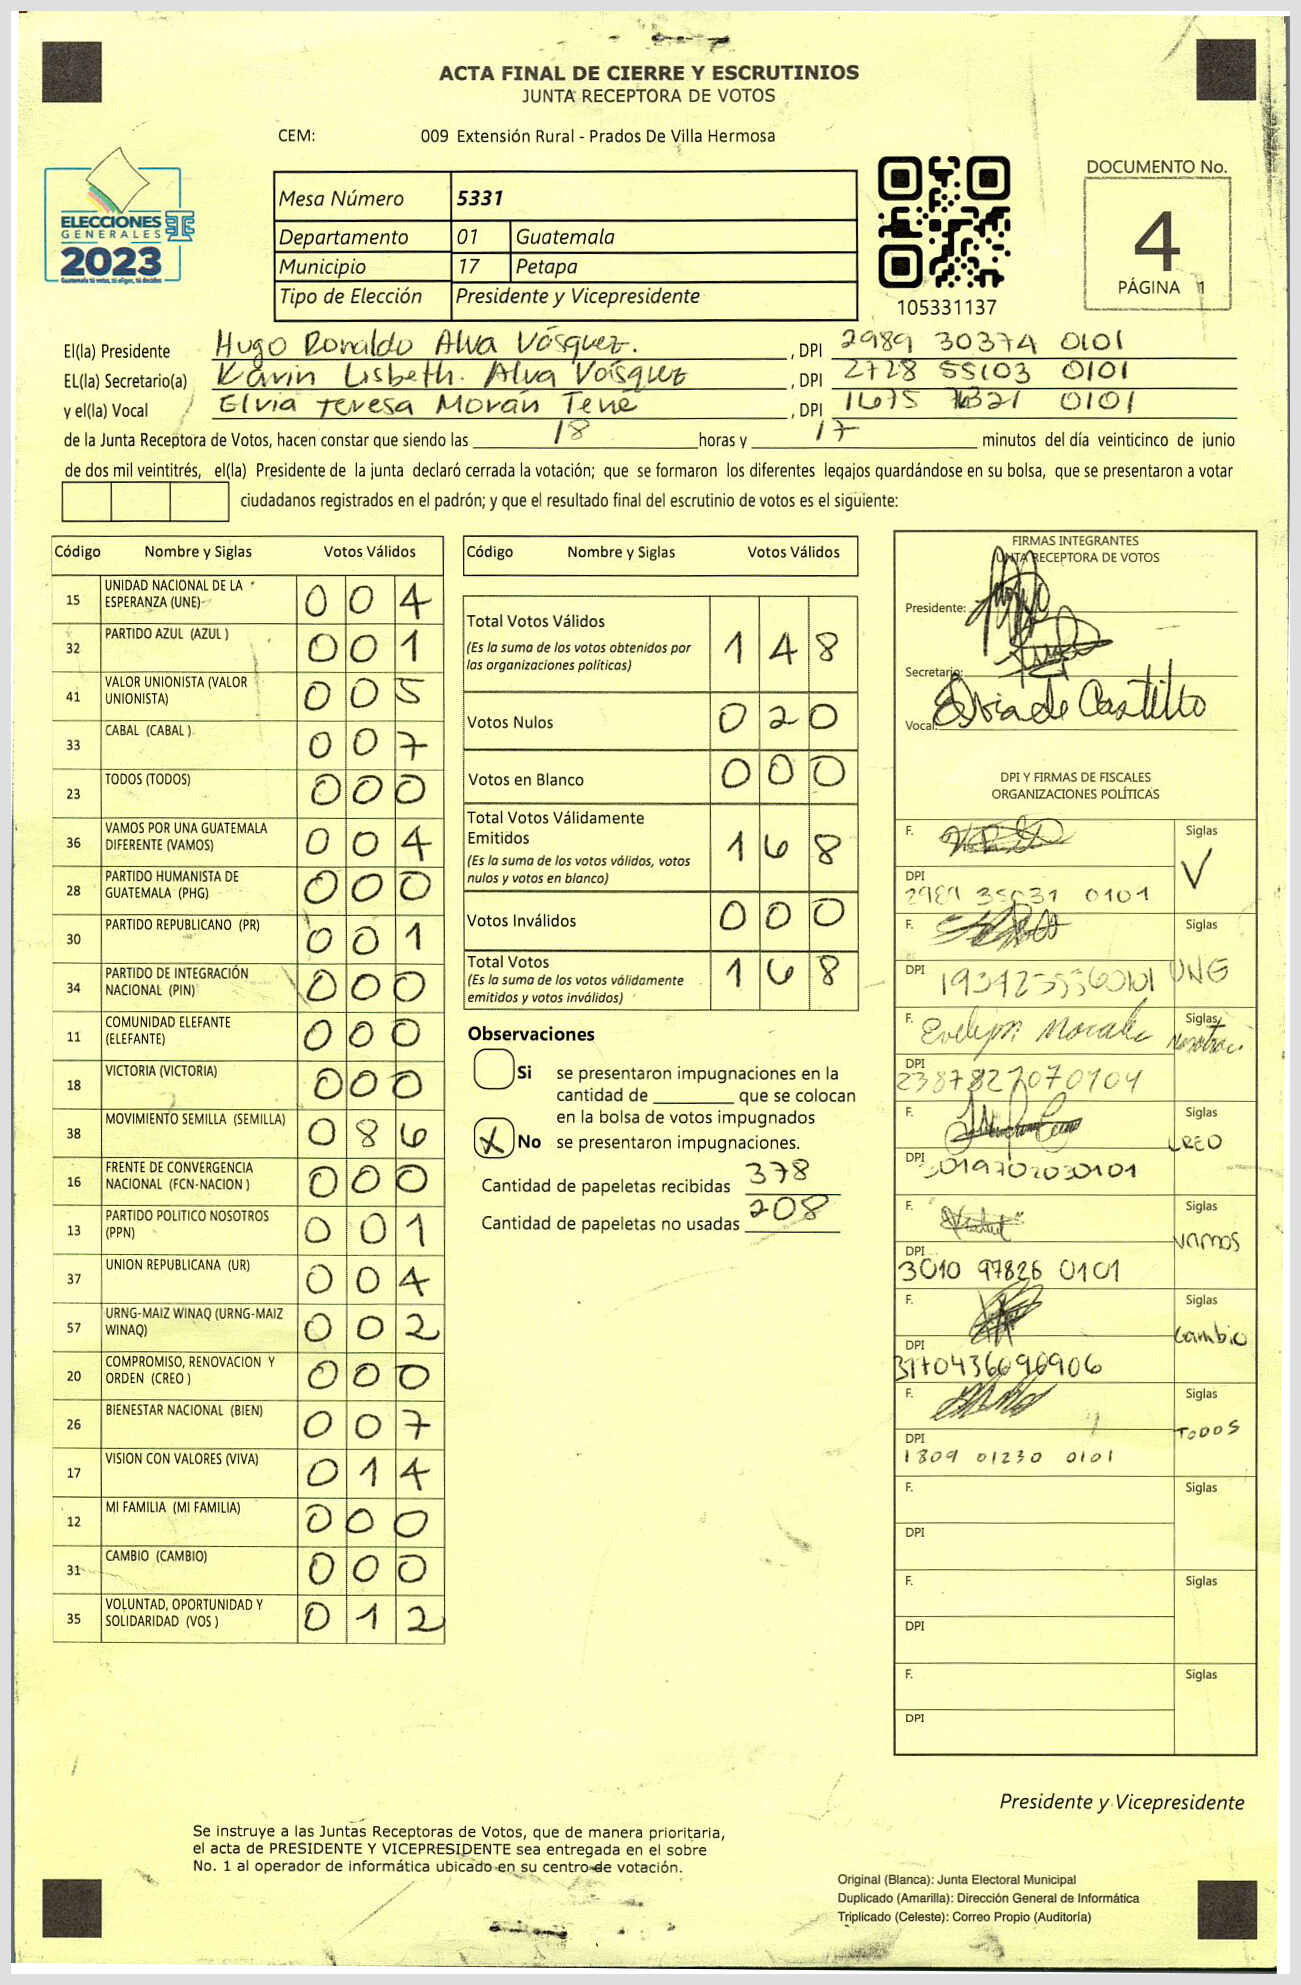 ACTA FINAL DE CIERRE Y ESCRUTINIOS
JUNTA RECEPTORA DE VOTOS
CEM: 009 Extensión Rural - Prados De Villa Hermosa
DOCUMENTO No.
4
PÁGINA 1
ELECCIONES
GENERALES
2023
Guatemala tú votas, tú eliges, tú decides
Mesa Número 5331
Departamento 01 Guatemala
Municipio 17 Petapa
Tipo de Elección Presidente y Vicepresidente
105331137
El(la) Presidente Hugo Ronaldo Alva Vásquez. , DPI 2989 30374 0101
EL(la) Secretario(a) Karin Lisbeth. Alva Vásquez , DPI 2728 55103 0101
y el(la) Vocal Elvia Teresa Morán Tene , DPI 1675 0101
de la Junta Receptora de Votos, hacen constar que siendo las 18 horas y 17 minutos del día veinticinco de junio
de dos mil veintitrés, el(la) Presidente de la junta declaró cerrada la votación; que se formaron los diferentes legajos guardándose en su bolsa, que se presentaron a votar
ciudadanos registrados en el padrón; y que el resultado final del escrutinio de votos es el siguiente:
Código Nombre y Siglas Votos Válidos
15 UNIDAD NACIONAL DE LA ESPERANZA (UNE) 0 0 4
32 PARTIDO AZUL (AZUL ) 0 0 1
41 VALOR UNIONISTA (VALOR UNIONISTA) 0 0 5
33 CABAL (CABAL ) 0 0 7
23 TODOS (TODOS) 0 0 0
36 VAMOS POR UNA GUATEMALA DIFERENTE (VAMOS) 0 0 4
28 PARTIDO HUMANISTA DE GUATEMALA (PHG) 0 0 0
30 PARTIDO REPUBLICANO (PR) 0 0 1
34 PARTIDO DE INTEGRACIÓN NACIONAL (PIN) 0 0 0
11 COMUNIDAD ELEFANTE (ELEFANTE) 0 0 0
18 VICTORIA (VICTORIA) 0 0 0
38 MOVIMIENTO SEMILLA (SEMILLA) 0 8 6
16 FRENTE DE CONVERGENCIA NACIONAL (FCN-NACION ) 0 0 0
13 PARTIDO POLITICO NOSOTROS (PPN) 0 0 1
37 UNION REPUBLICANA (UR) 0 0 4
57 URNG-MAIZ WINAQ (URNG-MAIZ WINAQ) 0 0 2
20 COMPROMISO, RENOVACION Y ORDEN (CREO ) 0 0 0
26 BIENESTAR NACIONAL (BIEN) 0 0 7
17 VISION CON VALORES (VIVA) 0 1 4
12 MI FAMILIA (MI FAMILIA) 0 0 0
31 CAMBIO (CAMBIO) 0 0 0
35 VOLUNTAD, OPORTUNIDAD Y SOLIDARIDAD (VOS ) 0 1 2
Código Nombre y Siglas Votos Válidos
Total Votos Válidos 1 4 8
(Es la suma de los votos obtenidos por
las organizaciones políticas)
Votos Nulos 0 2 0
Votos en Blanco 0 0 0
Total Votos Válidamente
Emitidos 1 6 8
(Es la suma de los votos válidos, votos
nulos y votos en blanco)
Votos Inválidos 0 0 0
Total Votos 1 6 8
(Es la suma de los votos válidamente
emitidos y votos inválidos)
Observaciones
Si se presentaron impugnaciones en la
cantidad de ________ que se colocan
en la bolsa de votos impugnados
X No se presentaron impugnaciones.
Cantidad de papeletas recibidas 378
Cantidad de papeletas no usadas 208
FIRMAS INTEGRANTES
JUNTA RECEPTORA DE VOTOS
Presidente:
Secretario:
Vocal: Elvia de Castillo
DPI Y FIRMAS DE FISCALES
ORGANIZACIONES POLÍTICAS
F. Siglas V
DPI 2989 35031 0101
F. Siglas UNE
DPI 1939255560101
F. Evelyn Morales Siglas Nosotros
DPI 2387827070104
F. Siglas CREO
DPI 3019702030101
F. Siglas VAMOS
DPI 3010 97826 0101
F. Siglas Cambio
DPI 3170436090906
F. Siglas TODOS
DPI 1809 01230 0101
F. Siglas
DPI
F. Siglas
DPI
F. Siglas
DPI
Presidente y Vicepresidente
Se instruye a las Juntas Receptoras de Votos, que de manera prioritaria,
el acta de PRESIDENTE Y VICEPRESIDENTE sea entregada en el sobre
No. 1 al operador de informática ubicado en su centro de votación.
Original (Blanca): Junta Electoral Municipal
Duplicado (Amarilla): Dirección General de Informática
Triplicado (Celeste): Correo Propio (Auditoría)